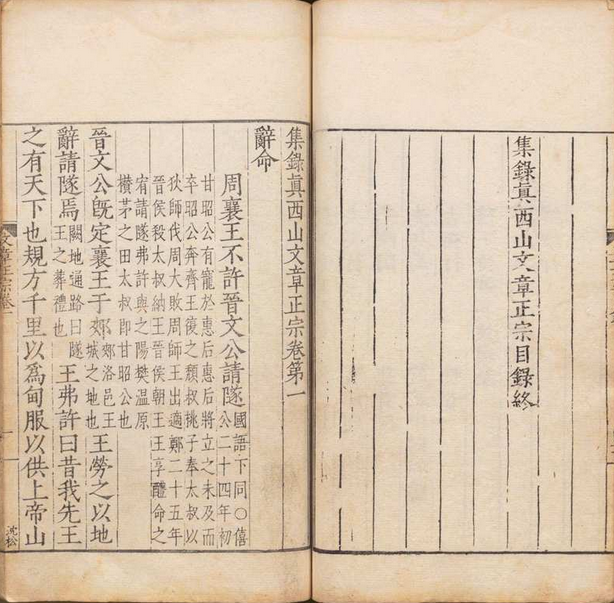 集錄真西山文章正宗目錄終
集錄真西山文章正宗卷第一
辭命
周襄王不許晉文公請隧國語下同○僖
公二十四年初
甘昭公有寵於惠后惠后將立之未及而
卒昭公奔齊王復之頹叔桃子奉太叔以
狄師伐周大敗周師王出適鄭二十五年
晉侯殺太叔納王晉侯朝王王享醴命之
宥請隧弗許與之陽樊温原
欑茅之田太叔即甘昭公也
晉文公旣定襄王于郊郊洛邑王城之地也王勞之以地
辭請隧焉闕地通路曰隧王之葬禮也王弗許曰昔我先王
之有天下也規方千里以爲甸服以供上帝山